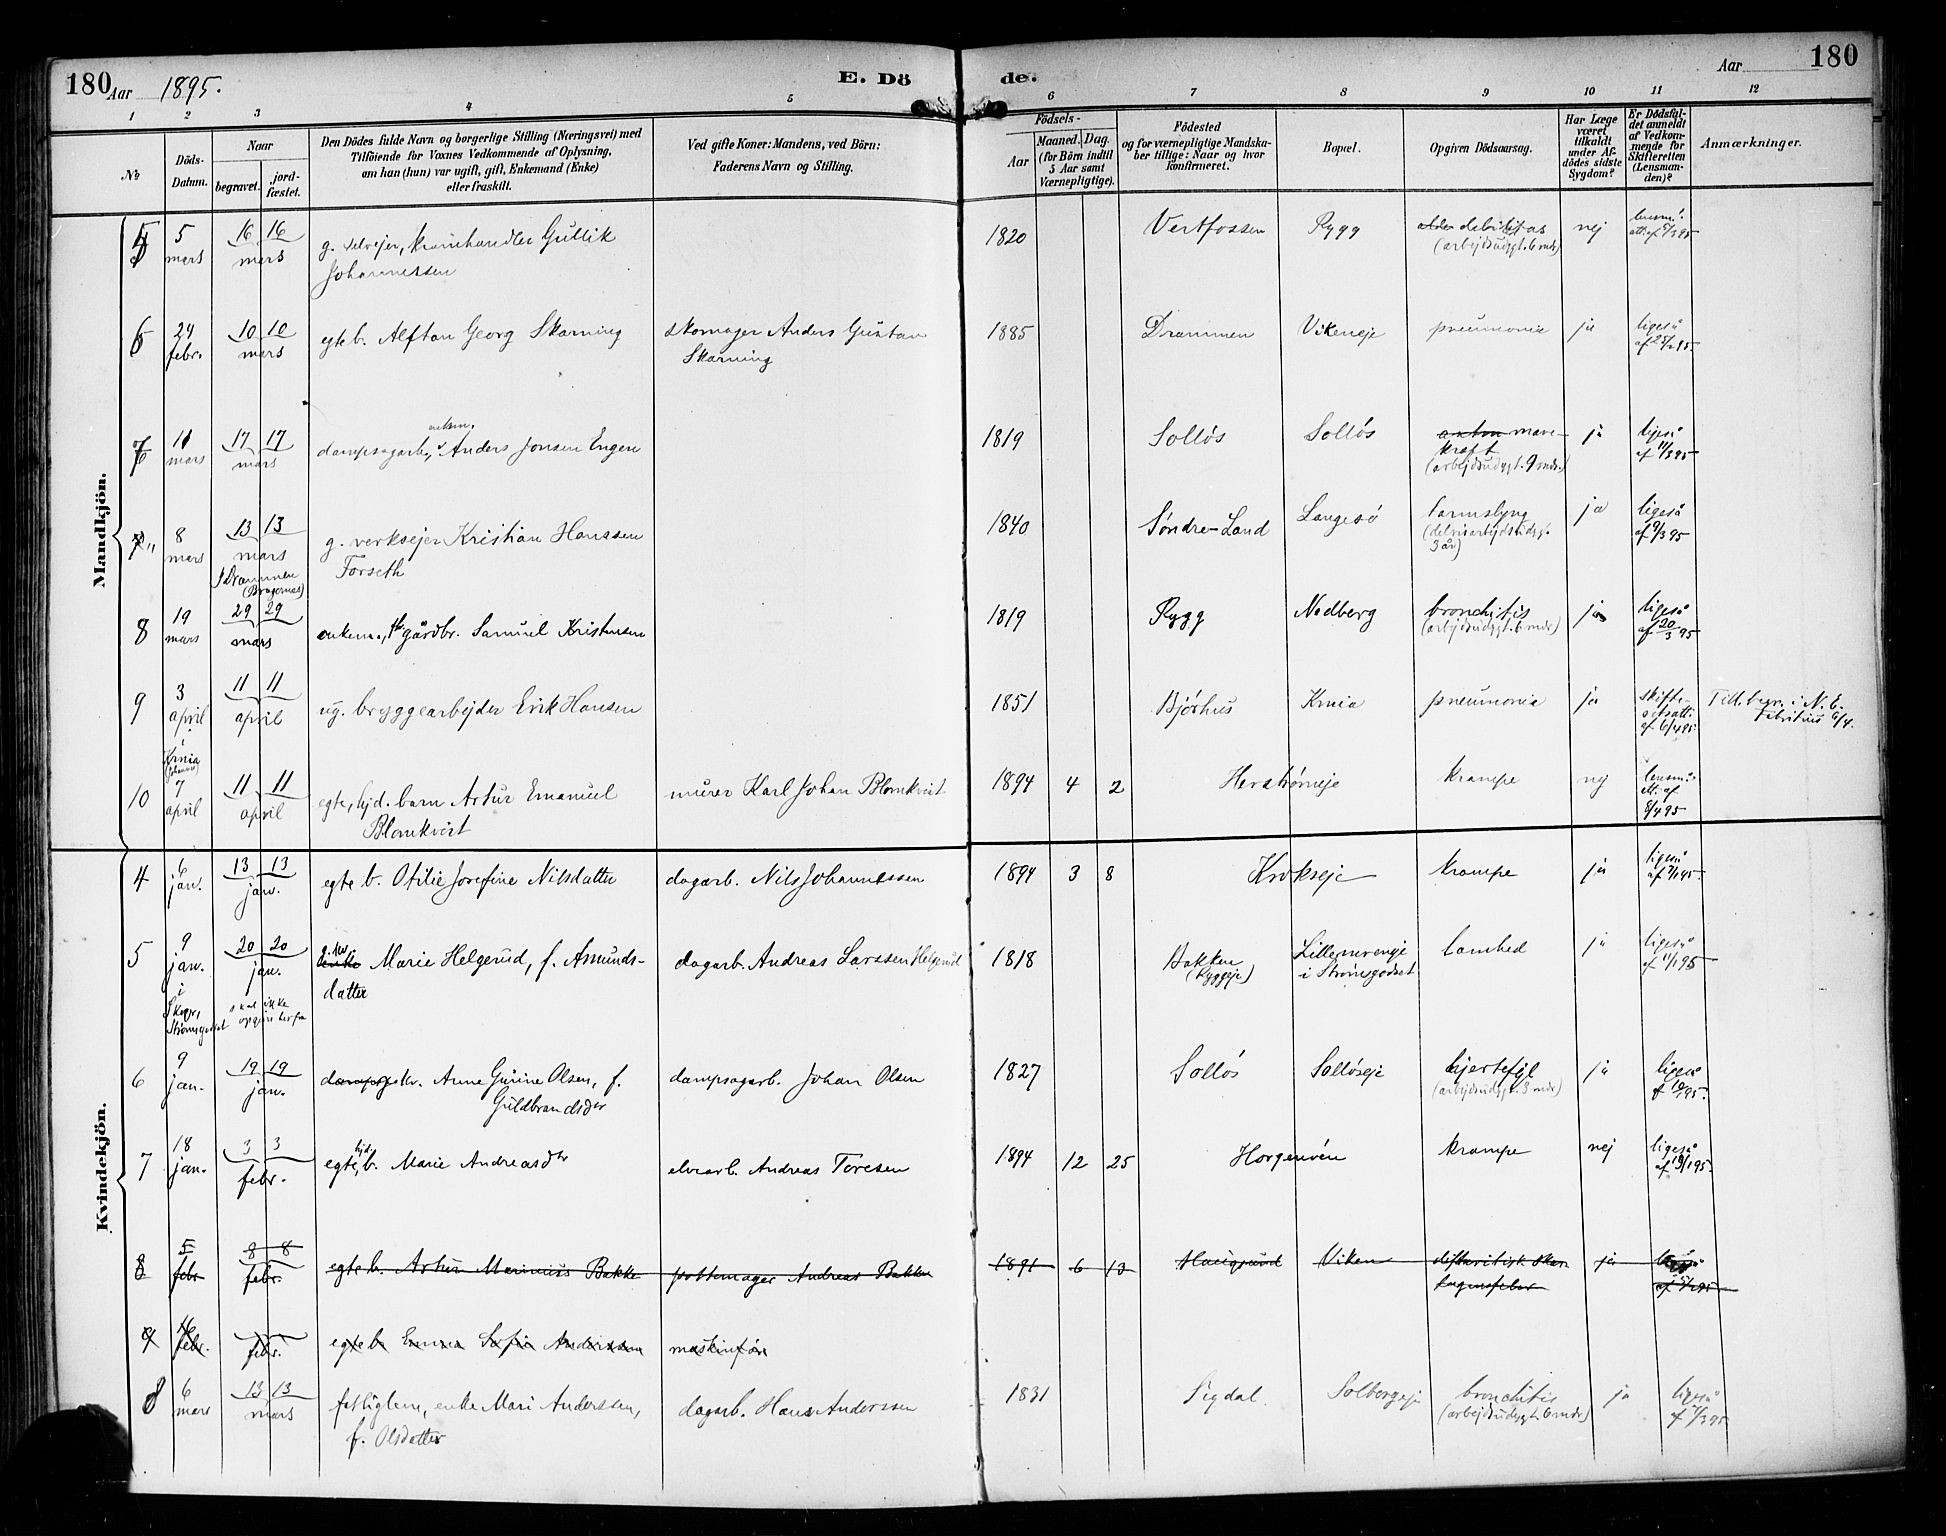 180 Aar 1895. E. Dö de. Aar 180
1 2 3 4 5 6 7 8 9 10 11 12
No
Döds-Datum.
Naar
begravet.
jord-fæstet.
Den Dödes fulde Navn og borgerlige Stilling (Næringsvei) med
Tilföiende for Voxnes Vedkommende af Oplysning,
om han (hun) var ugift, gift, Enkemand (Enke)
eller fraskilt.
Ved gifte Koner: Mandens, ved Börn:
Faderens Navn og Stilling.
Födsels-
Aar
Maaned.
Dag.
(for Börn indtil
5 Aar samt
Værnepligtige).
Födested
og for værnepligtige Mandska-
ber tillige: Naar og hvor
konfirmeret.
Bopæl.
Opgiven Dödsaarsag.
Har Læge
været
tilkaldt
under Af-
dödes sidste
Sygdom?
Er Dödsfal-
det anmeldt
af Vedkom-
mende for
Skifteretten
(Lensman-
den)?
Anmærkninger.
Mandkjön.
5 5 mars 16 16 mars g. selvejer, kramhandler Gullik
Johannessen
1820 Vestfossen Rygg debilitas nej lensm.
(arbejdsudygt. 6 mdr) att. af 5/3 95
6 24 febr. 10 10 mars egte b. Alftan Georg Skarning skomager Anders Gustav
Skarning
1885 Drammen Vikeneje pneumonia ja ligeså
af 25/2 95.
7 11 mars 17 17 mars dampsagarb., enkem. Anders Jonsen Engen
1819 Solløs Solløs mave-
kræft
(arbejdsudygt. 9 mdr.) ja ligeså
af 11/3 95
7" 8 mars 13 13 mars g. verksejer Kristian Hanssen
Forseth
i Drammen
(Bragernes)
1840 Søndre-Land Langesø tarmslyng ja ligeså
3 år) af 9/3 95
8 19 mars 29 29 mars enkem., gårdbr. Samuel Kristensen
1819 Rygg Nedberg bronchitis ja ligeså
(arbejdsudygt. 6 mdr) af 20/3 95
9 3 april 11 11 april ug. bryggearbejder Erik Hansen
Krnia
1851 Bjørhus Krnia pneumonia ja skifte-
af 6/4 95. Till. begr. i N. E.
Fabritius 6/4.
10 7 april 11 11 april egte, hjd. barn Artur Emanuel
Blomkvist
murer Karl Johan Blomkvist
1894 4 2 Herstrømeje krampe nej lensm.
att. af
8/4 95
Kvindekjön.
4 6 jan. 13 13 jan. egte b. Otilie Josefine Nilsdatter dagarb. Nils Johannessen 1894 3 8 Krokseje krampe ja ligeså
af 7/1 95.
5 9 jan. 20 20 jan. Marie Helgerud, f. Asmunds-
datter
dagarb. Andreas Larssen Helgerud
i
Skoger,
Strømsgodset
skal ikke
opgives herfra
1818 Bakken
(Ryggeje)
i Strømsgodset
lamhed ja ligeså
af 11/1 95
6 9 jan. 19 19 jan. Anne Gurine Olsen, f.
Guldbrandsder
dampsagarb. Johan Olsen 1827 Solløs Solløseje hjertefejl ja ligeså
(arbejdsudygt. 3 mdr)
7 18 jan. 3 3 febr. egte, hjd. b. Marie Andreasdtr elvearb. Andreas Toresen 1894 12 25 Horgenvên krampe nej ligeså
af 19/1 95.
8 5 febr 8 8 febr. egte b. Artur Marinius Bakke pottemager Andreas Bakke 1891 6 13 Viken difteritisk ska-
lagensfeber ja ligeså
9 febr. febr. egte b Emma Sofia Anderssen maskinfør
8 6 mars 13 13 mars fattiglem, enke Mari Anderssen,
f. Olsdatter
dagarb. Hans Anderssen 1831 Sigdal Solbergeje bronchitis ja ligeså
(arbejdsudygt. 6 mdr) af 7/3 95